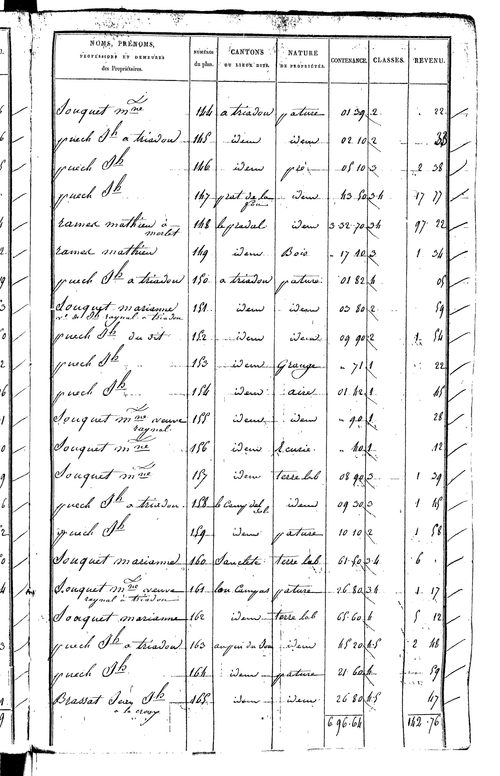 NOMS, PRÉNOMS, PROFESSIONS ET DEMEURES des Propriétaires. NUMÉROS du plan. CANTONS OU LIEUX DITS. NATURE DE PROPRIÉTÉS. CONTENANCE. CLASSES. REVENU.
Souquet mne 144 a triadou pature 01 39 2 . 22
puech Jh a triadou 145 idem idem 02 10 2 33
puech Jh 146 idem pré 05 10 3 2 38
puech Jh 147 prat de la idem 43 50 3 4 17 77
ramex mathieu à 148 le pradal idem 3 32 70 3 4 97 22
morlet
ramex mathieu 149 idem Bois 17 40 3 1 34
puech Jh a triadou 150 a triadou pature 01 82 4 05
Souquet marianne 151 idem idem 03 80 2 59
ve de Jh raynal a triadou
puech Jh du dit 152 idem 09 90 2 1 54
puech Jh 153 idem Grange 71 1 22
puech Jh 154 idem aire 01 42 1 45
Souquet mne veuve 155 idem idem 90 1 28
raynal
Souquet mne 156 idem Ecurie 40 1 12
Souquet mne 157 idem terre lab 08 90 3 1 39
puech Jh a triadou 158 le Camp del idem 09 30 3 1 45
puech Jh 159 idem pature 10 10 2 1 58
Souquet marianne 160 terre lab 61 50 3 4 6
Souquet mne veuve 161 lou pature 26 80 3 4 1 17
raynal a triadou
Souquet marianne 162 idem terre lab 65 60 4 5 12
puech Jh a triadou 163 idem 45 20 4 5 2 48
puech Jh 164 idem pature 21 60 4 59
Brassat Jh 165 idem idem 26 80 4 5 47
a la
6 96 64 142 76